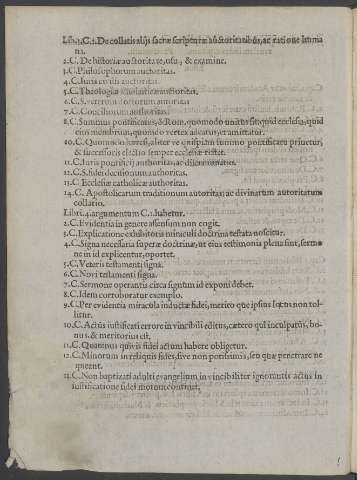 Lib.3.C.1. De collatis alijs sacræ scripturæ auctoritatibus, ac ratione huma
na.
2.C. De historiæ auctoritate, usu, & examine.
3.C. Philosophorum auctoritas.
4.C. Iuris civilis auctoritas.
5.C. Theologiæ scholasticæ auctoritas.
6.C. Sanctorum doctorum auctoritas
7.C. Conciliorum auctoritas
8.C. Summus pontificatus, & Rom. quomodo unitus sit quid ecclesia, quid
eius membrum, quomodo vertex adeatur, et amittatur.
10.C. Quomodo iure fiat, aliter ve quispiam summo pontificatu privetur,
& successoris electio semper ecclesiæ restet.
11.C. Iuris pontificij authoritas, ac discriminatio.
12.C. S. fidei decisionum auctoritas.
13.C. Ecclesiæ catholicæ auctoritas.
14.C. Apostolicarum traditionum autoritas, ac divinarum autoritatum
collatio.
Libri.4. argumentum C.1. habetur.
2.C. Evidentia in genere assensum non cogit.
3.C. Explicatione exhibitoris miraculi doctrina testata noscitur.
4.C. Signa necessaria superæ doctrinæ, ut eius testimonia plena sint, sermo
ne in id explicentur, oportet.
5.C. Veteris testamenti signa.
6.C. Novi testamenti signa.
7.C. Sermone operantis circa signum id exponi debet.
8.C. Idem corroboratur exemplo.
9.C. Per evidentia miracula inductæ fidei, merito que ipsius lætus non tol
litur.
10.C. Actus iustificati errore invincibili editus, cætero qui inculpatus, bo-
nus, & meritorius est.
11.C. Quatenus quivis fidei actum habere obligetur.
12.C. Minorum in reliquis fidei, sive non potissimis, seu quæ penetrare ne
queant.
13.C. Non baptizati adulti evangelium invincibiliter ignorantis actus in
iustificatione fidei motum continet.